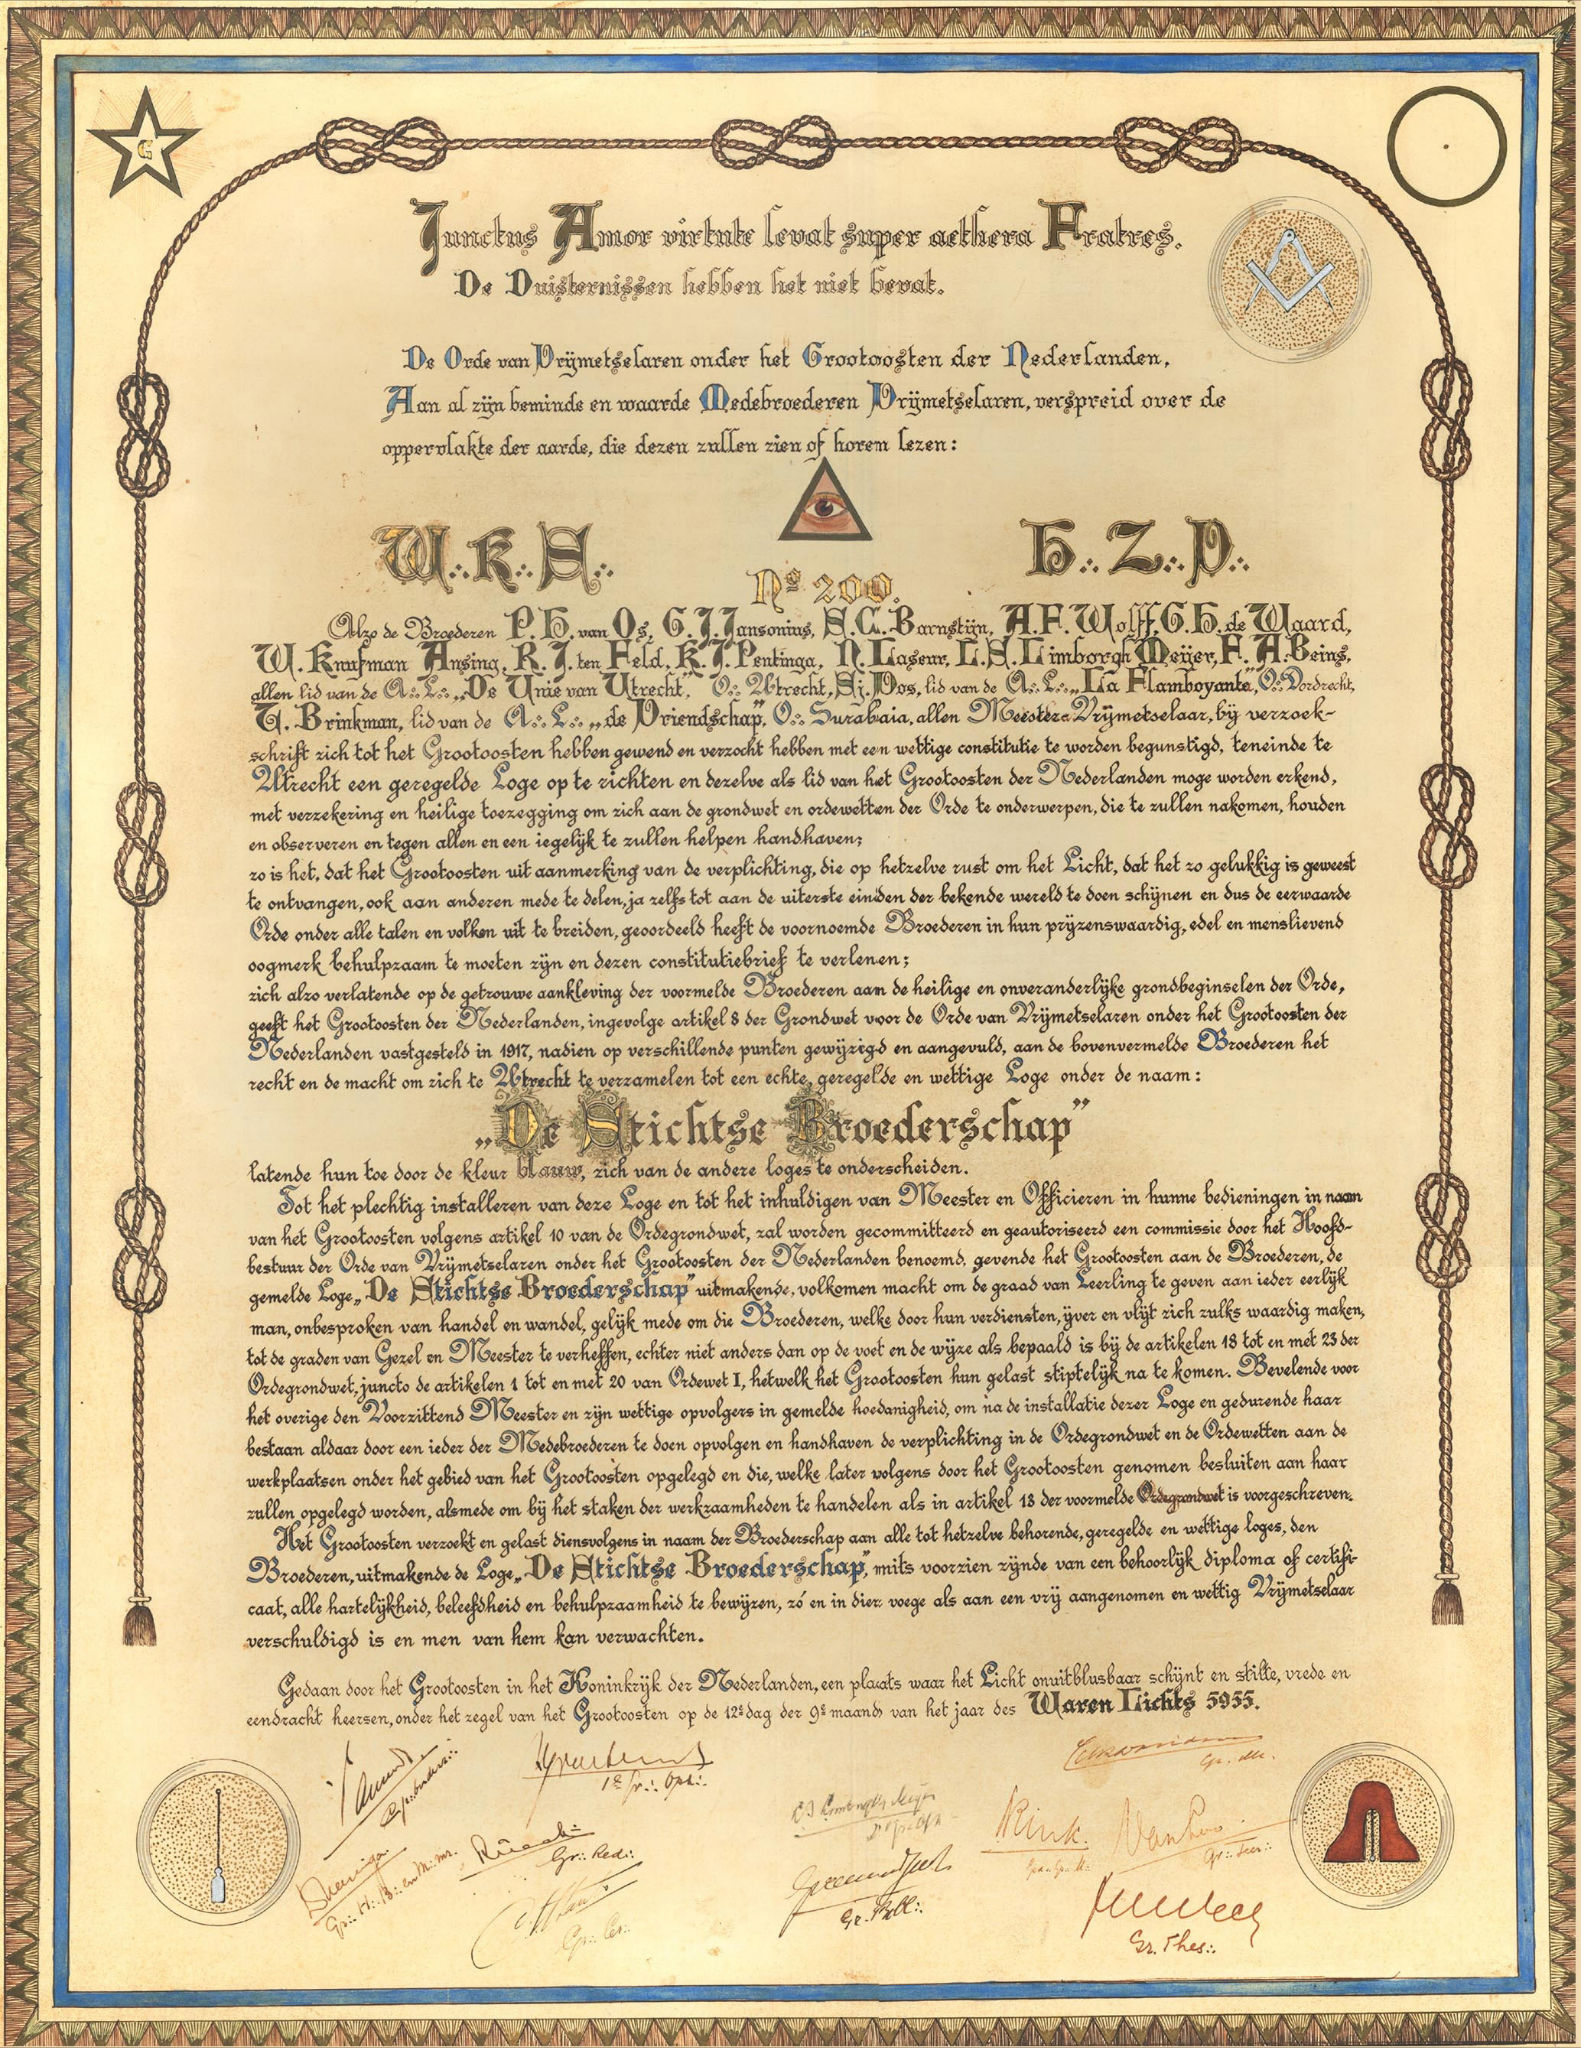 G
Junctus Amor virtute levat super aethera Fratres.
De Duisternissen hebben het niet bevat.
De Orde van Vrijmetselaren onder het Grootoosten der Nederlanden,
Aan al zijn beminde en waarde Medebroederen Vrijmetselaren, verspreid over de
oppervlakte der aarde, die dezen zullen zien of horem lezen:
W∴K∴S∴ H∴Z∴V∴
Nº 200.
Alzo de Broederen P. H. van Os, G. J. Jansonius, S. C. Barnstijn, A. F. Wolff, G. H. de Waard,
W. Knufman Ansing, R. J. ten Feld, K. J. Pentinga, N. Laseur, L. S. Limborgh Meijer, F. A. Beins,
allen lid van de A∴L∴ „De Unie van Utrecht", O∴ Utrecht, Sj. Vos, lid van de A∴L∴ „La Flamboyante", O∴ Dordrecht,
T. Brinkman, lid van de A∴L∴ „de Vriendschap", O∴ Surabaia, allen Meester-Vrijmetselaar, bij verzoek-
schrift zich tot het Grootoosten hebben gewend en verzocht hebben met een wettige constitutie te worden begunstigd, teneinde te
Utrecht een geregelde Loge op te richten en dezelve als lid van het Grootoosten der Nederlanden moge worden erkend,
met verzekering en heilige toezegging om zich aan de grondwet en ordewetten der Orde te onderwerpen, die te zullen nakomen, houden
en observeren en tegen allen en een iegelijk te zullen helpen handhaven;
zo is het, dat het Grootoosten uit aanmerking van de verplichting, die op hetzelve rust om het Licht, dat het zo gelukkig is geweest
te ontvangen, ook aan anderen mede te delen, ja zelfs tot aan de uiterste einden der bekende wereld te doen schijnen en dus de eerwaarde
Orde onder alle talen en volken uit te breiden, geoordeeld heeft de voornoemde Broederen in hun prijzenswaardig, edel en menslievend
oogmerk behulpzaam te moeten zijn en dezen constitutiebrief te verlenen;
zich alzo verlatende op de getrouwe aankleving der voormelde Broederen aan de heilige en onveranderlijke grondbeginselen der Orde,
geeft het Grootoosten der Nederlanden, ingevolge artikel 8 der Grondwet voor de Orde van Vrijmetselaren onder het Grootoosten der
Nederlanden vastgesteld in 1917, nadien op verschillende punten gewijzigd en aangevuld, aan de bovenvermelde Broederen het
recht en de macht om zich te Utrecht te verzamelen tot een echte, geregelde en wettige Loge onder de naam:
„De Stichtse Broederschap"
latende hun toe door de kleur blauw, zich van de andere loges te onderscheiden.
Tot het plechtig installeren van deze Loge en tot het inhuldigen van Meester en Officieren in hunne bedieningen in naam
van het Grootoosten volgens artikel 10 van de Ordegrondwet, zal worden gecommitteerd en geautoriseerd een commissie door het Hoofd-
bestuur der Orde van Vrijmetselaren onder het Grootoosten der Nederlanden benoemd, gevende het Grootoosten aan de Broederen, de
gemelde Loge „De Stichtse Broederschap" uitmakende, volkomen macht om de graad van Leerling te geven aan ieder eerlijk
man, onbesproken van handel en wandel, gelijk mede om die Broederen, welke door hun verdiensten, ijver en vlijt zich zulks waardig maken,
tot de graden van Gezel en Meester te verheffen, echter niet anders dan op de voet en de wijze als bepaald is bij de artikelen 18 tot en met 23 der
Ordegrondwet, juncto de artikelen 1 tot en met 20 van Ordewet I, hetwelk het Grootoosten hun gelast stiptelijk na te komen. Bevelende voor
het overige den Voorzittend Meester en zijn wettige opvolgers in gemelde hoedanigheid, om na de installatie dezer Loge en gedurende haar
bestaan aldaar door een ieder der Medebroederen te doen opvolgen en handhaven de verplichting in de Ordegrondwet en de Ordewetten aan de
werkplaatsen onder het gebied van het Grootoosten opgelegd en die, welke later volgens door het Grootoosten genomen besluiten aan haar
zullen opgelegd worden, alsmede om bij het staken der werkzaamheden te handelen als in artikel 13 der voormelde Ordegrondwet is voorgeschreven.
Het Grootoosten verzoekt en gelast diensvolgens in naam der Broederschap aan alle tot hetzelve behorende, geregelde en wettige loges, den
Broederen, uitmakende de Loge „De Stichtse Broederschap", mits voorzien zijnde van een behoorlijk diploma of certifi-
caat, alle hartelijkheid, beleefdheid en behulpzaamheid te bewijzen, zó en in dier voege als aan een vrij aangenomen en wettig Vrijmetselaar
verschuldigd is en men van hem kan verwachten.
Gedaan door het Grootoosten in het Koninkrijk der Nederlanden, een plaats waar het Licht onuitblusbaar schijnt en stilte, vrede en
eendracht heersen, onder het zegel van het Grootoosten op de 12e dag der 9e maand van het jaar des Waren Lichts 5955.
1e Gr∴ Opz∴
Gr∴ Red∴
Gr∴ Cer∴
Gr. Thes∴